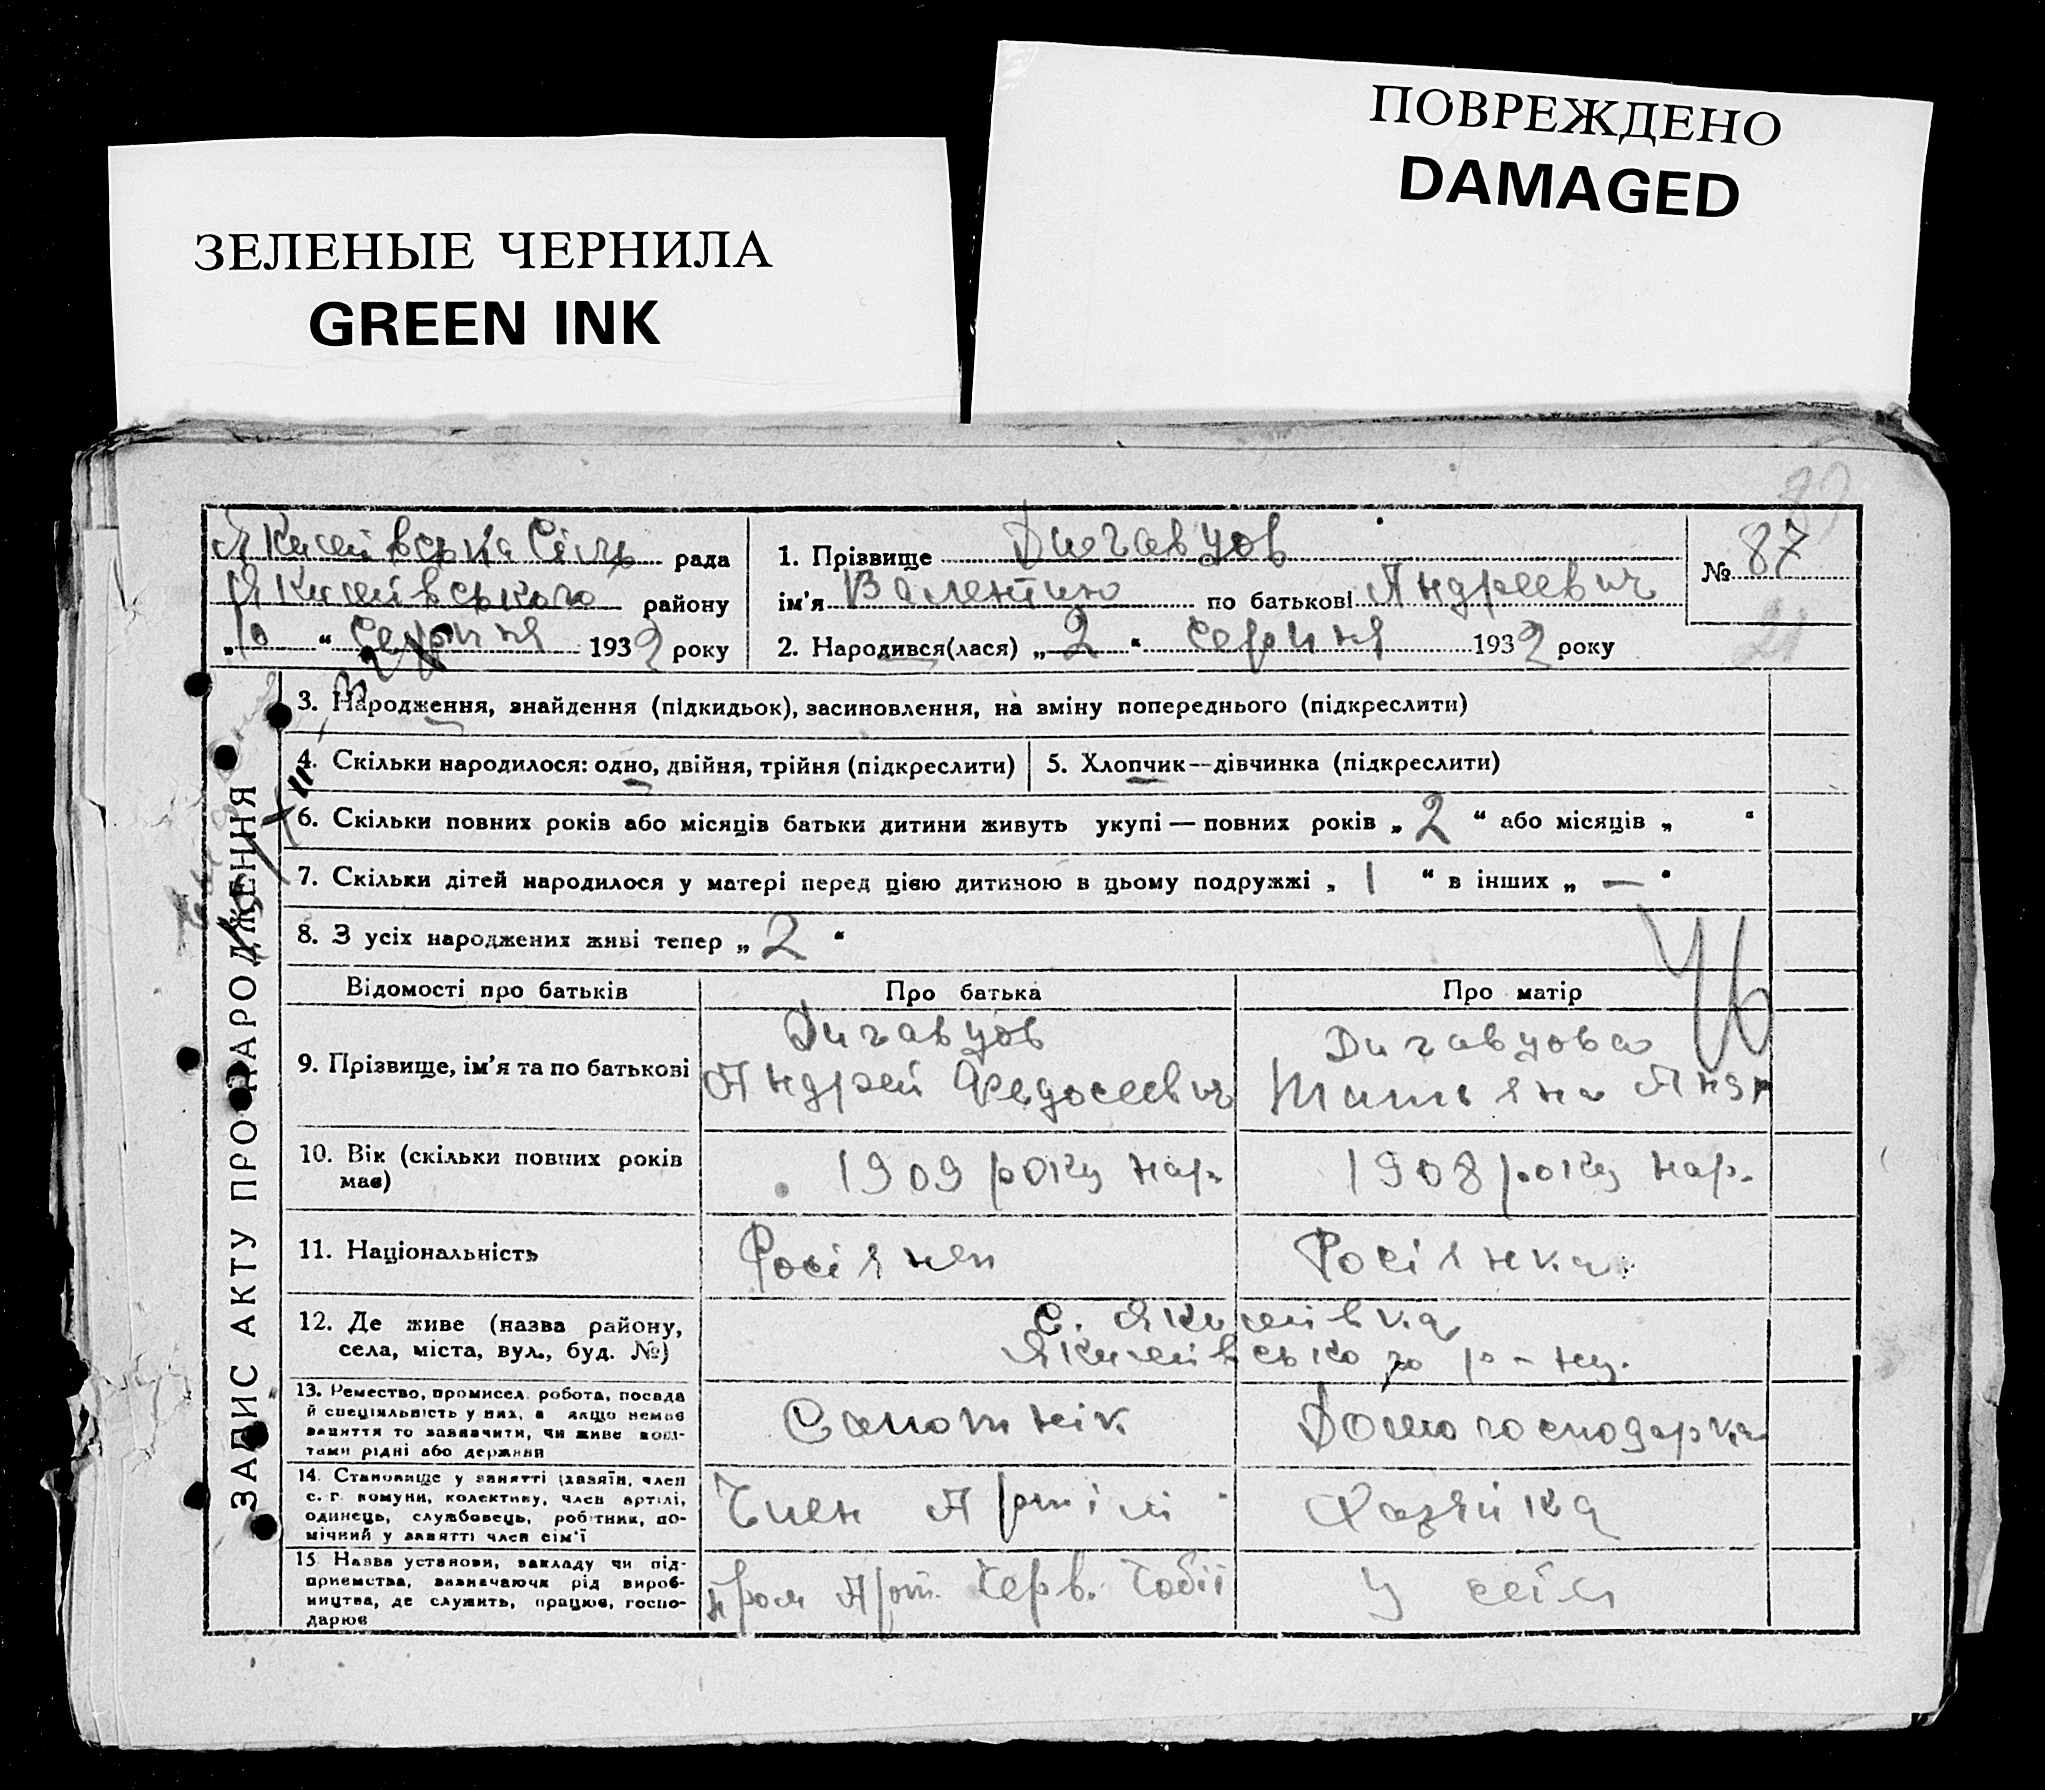 ПОВРЕЖДЕНО
DAMAGED
ЗЕЛЕНЫЕ ЧЕРНИЛА
GREEN INK
Якимівська Сіль рада
Якимівського району
„10“ Серпня 1932 року
1. Прізвище Дигавцов
ім'я Валентин по батькові Андреевич
2. Народився(лася) „2“ Серпня 1932 року
№ 87
ЗАПИС АКТУ ПРО НАРОДЖЕННЯ
3. Народження, знайдення (підкидьок), засиновлення, на зміну попереднього (підкреслити)
4. Скільки народилося: одно, двійня, трійня (підкреслити)
5. Хлопчик—дівчинка (підкреслити)
6. Скільки повних років або місяців батьки дитини живуть укупі — повних років „2“ або місяців „ “
7. Скільки дітей народилося у матері перед цією дитиною в цьому подружжі „1“ в інших „—“
8. З усіх народжених живі тепер „2“
Відомості про батьків
Про батька
Про матір
9. Прізвище, ім'я та по батькові
Дигавцов
Андрей Федосеевич
Дигавцова
Татьяна Андр
10. Вік (скільки повних років
має)
1909 року нар.
1908 року нар.
11. Національність
Росіянен
Росіянка
12. Де живе (назва району,
села, міста, вул., буд. №)
С. Якимівка
Якимівського р-ну.
13. Ремество, промисел, робота, посада
й спеціяльність у них, а якщо немає
заняття то зазначити, чи живе кош-
тами рідні або держави
Сапотнік
Домогосподарка
14. Становище у занятті (хазяїн, член
с. г. комуни, колективу, член артілі,
одинець, службовець, робітник, по-
мічний у занятті член сім'ї
Член Артілі
Хазяйка
15. Назва установи, закладу чи під-
приємства, зазначаючи рід вироб-
ництва, де служить, працює, госпо-
дарює
Пром Арт. Черв. Чобіт
у сеїм